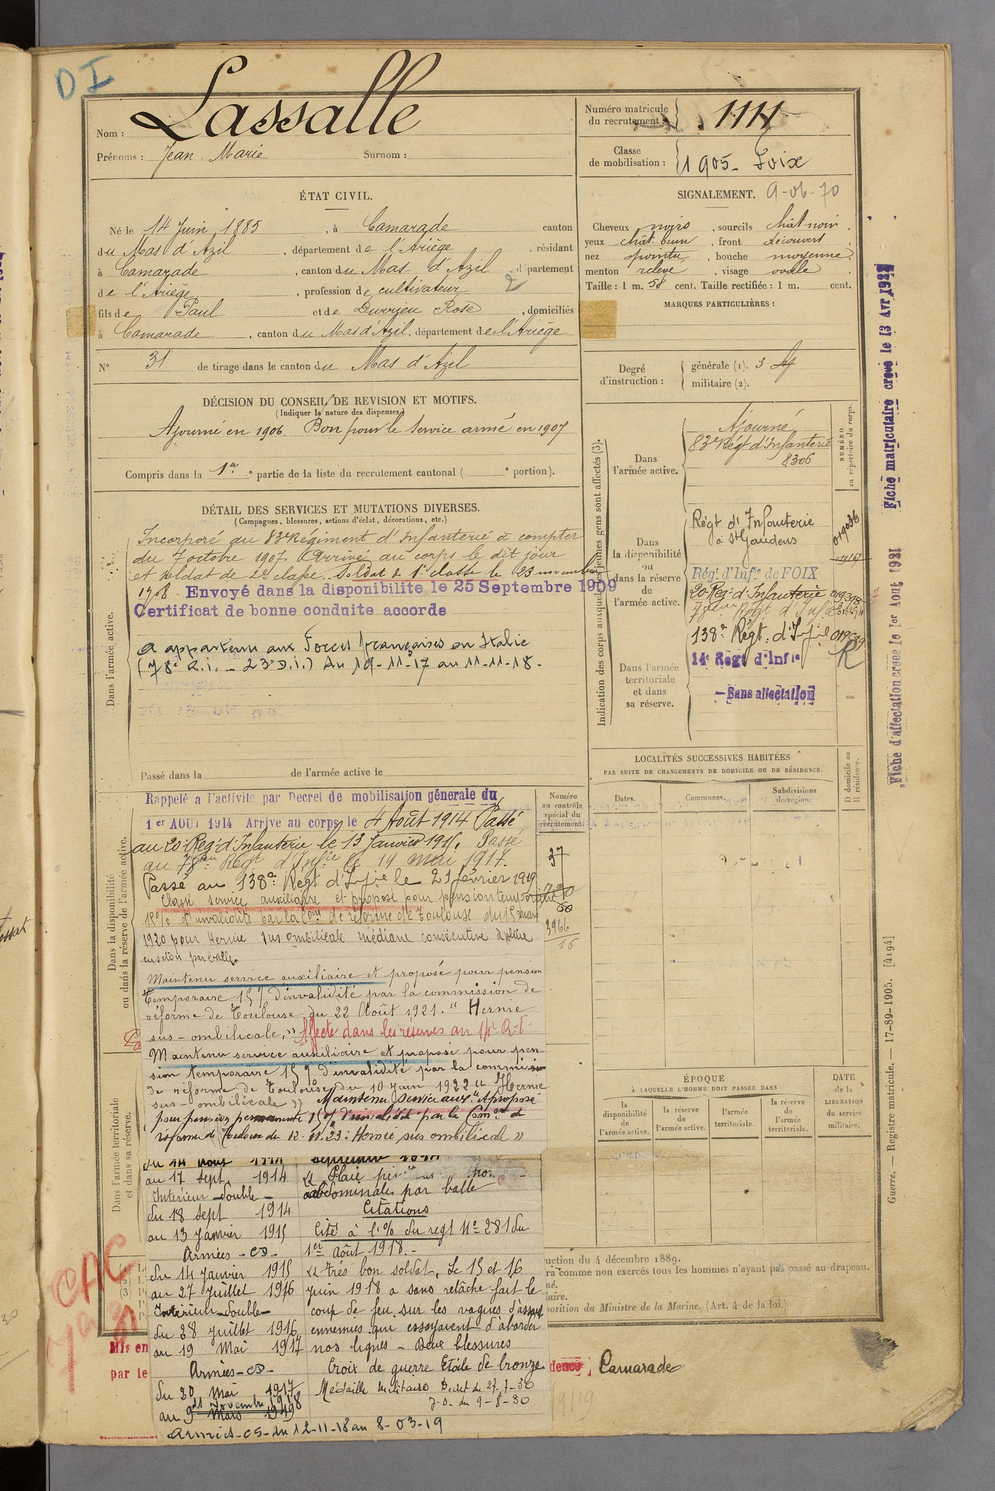 DI
Nom : Lassalle
Prénoms : Jean Marie Surnom :
Numéro matricule du recrutement : 1111
Classe de mobilisation : 1905 - Foix
ÉTAT CIVIL.
Né le 14 Juin 1885, à Camarade canton
du Mas d'Azil, département de l'Ariège, résidant
à Camarade, canton du Mas d'Azil département
de l'Ariège, profession de cultivateur
fils de Paul et de Rose, domiciliés
à Camarade, canton du Mas d'Azil, département de l'Ariège
N° 31 de tirage dans le canton du Mas d'Azil
SIGNALEMENT. 9-06-70
Cheveux noirs, sourcils chât noir.
yeux chât. brun, front découvert
nez pointu, bouche moyenne.
menton relevé, visage ovale.
Taille : 1 m. 58 cent. Taille rectifiée : 1 m. cent.
MARQUES PARTICULIÈRES :
Degré d'instruction : générale (1). 3
militaire (2).
DÉCISION DU CONSEIL DE REVISION ET MOTIFS.
(Indiquer la nature des dispenses)
Ajourné en 1906. Bon pour le service armé en 1907
Compris dans la 1re partie de la liste du recrutement cantonal ( e portion).
DÉTAIL DES SERVICES ET MUTATIONS DIVERSES.
(Campagnes, blessures, actions d'éclat, décorations, etc.)
Dans l'armée active.
Incorporé au 83e Régiment d'Infanterie à compter
du 7 octobre 1907. Arrivé au corps le dit jour
et soldat de 2e classe. Soldat de 1e classe le 23 novembre
1908. Envoyé dans la disponibilité le 25 Septembre 1909
Certificat de bonne conduite accordé
a appartenu aux Forces françaises en Italie
(78e R.i. - 23e D.i.) du 19-11-17 au 11-11-18.
Passé dans la de l'armée active le
Indication des corps auxquels les jeunes gens sont affectés (3).
NUMÉRO au répertoire du corps.
Dans l'armée active.
Ajourné
83e Régt d'Infanterie
8306
Dans la disponibilité ou dans la réserve de l'armée active.
Régt d'Infanterie
à St Gaudens
Rég. d'Infie de FOIX
20e Rég. d'Infanterie
78e Régt d'Infie
138e Régt d'Infie
Dans l'armée territoriale et dans sa réserve.
14e Régt d'Infie
Sans affectation
Fiche matriculaire créée le 13 Avr 1932
Fiche d'affectation créée le 1er Août 1931
LOCALITÉS SUCCESSIVES HABITÉES
PAR SUITE DE CHANGEMENTS DE DOMICILE OU DE RÉSIDENCE.
Dates. Communes. Subdivisions de région. D domicile ou R résidence.
Dans la disponibilité ou dans la réserve de l'armée active.
Numéro au contrôle spécial du recrutement.
37
Rappelé à l'activité par Décret de mobilisation générale du
1er AOUT 1914 Arrivé au corps le 4 Août 1914 Passé
au 20e Rég. d'Infanterie le 13 Janvier 1915. Passé
au 78e Régt d'Infie le 19 mai 1917.
Passé au 138e Régt d'Infie le 21 février 1919
Classé service auxiliaire et proposé pour pension temporaire
15% d'invalidité par la Con de réforme de Toulouse du
1920 pour Hernie sus ombilicale médiane consécutive à plaie
en séton par balle
Maintenu service auxiliaire et proposé pour pension
temporaire 15% d'invalidité par la commission de
réforme de Toulouse du 22 Août 1921. "Hernie
sus-ombilicale." Affecté dans les réserves au 14e R.I.
Maintenu service auxiliaire et proposé pour pen-
sion temporaire 15% d'invalidité par la commission
de réforme de Toulouse du 10 Juin 1922 "Hernie
sus-ombilicale" Maintenu Service aux. et proposé
pour pension permanente 15% d'invalidité par la Com. de
réforme de Toulouse du 12-11-23 : Hernie sus ombilicale »
Dans l'armée territoriale et dans sa réserve.
du 14 août 1914
au 17 Sept. 1914
Intérieur double -
du 18 Sept 1914
au 13 Janvier 1915
Armées - CD -
du 14 Janvier 1915
au 27 Juillet 1916
Intérieur double -
du 28 Juillet 1916
au 19 Mai 1917
Armées - CD -
du 20 Mai 1917
11 Novembre 1918
au 9 Mars 1919
Armées - CS - du 12-11-18 au 8-03-19
septembre 1914
abdominale par balle
Citations
Cité à l'O/ du regt N° 281 du
1er août 1918. -
"très bon soldat, Le 15 et 16
Juin 1918 a sans relâche fait le
coup de feu sur les vagues d'assaut
ennemies qui essayaient d'aborder
nos lignes - Deux blessures
Croix de guerre Etoile de bronze
Médaille Militaire Décret du 27-7-30
J.O. du 9-8-30
ÉPOQUE
À LAQUELLE L'HOMME DOIT PASSER DANS
la disponibilité de l'armée active. la réserve de l'armée active. l'armée territoriale. la réserve de l'armée territoriale.
DATE de la LIBÉRATION du service militaire.
uction du 4 décembre 1889.
ra comme non exercés tous les hommes n'ayant pas passé au drapeau.
né.
aire.
position du Ministre de la Marine, (Art. 4 de la loi.)
Guerre. — Registre matricule. — 17-89-1905. [4194]
CAC
Mis en
par le
dence, Camarade